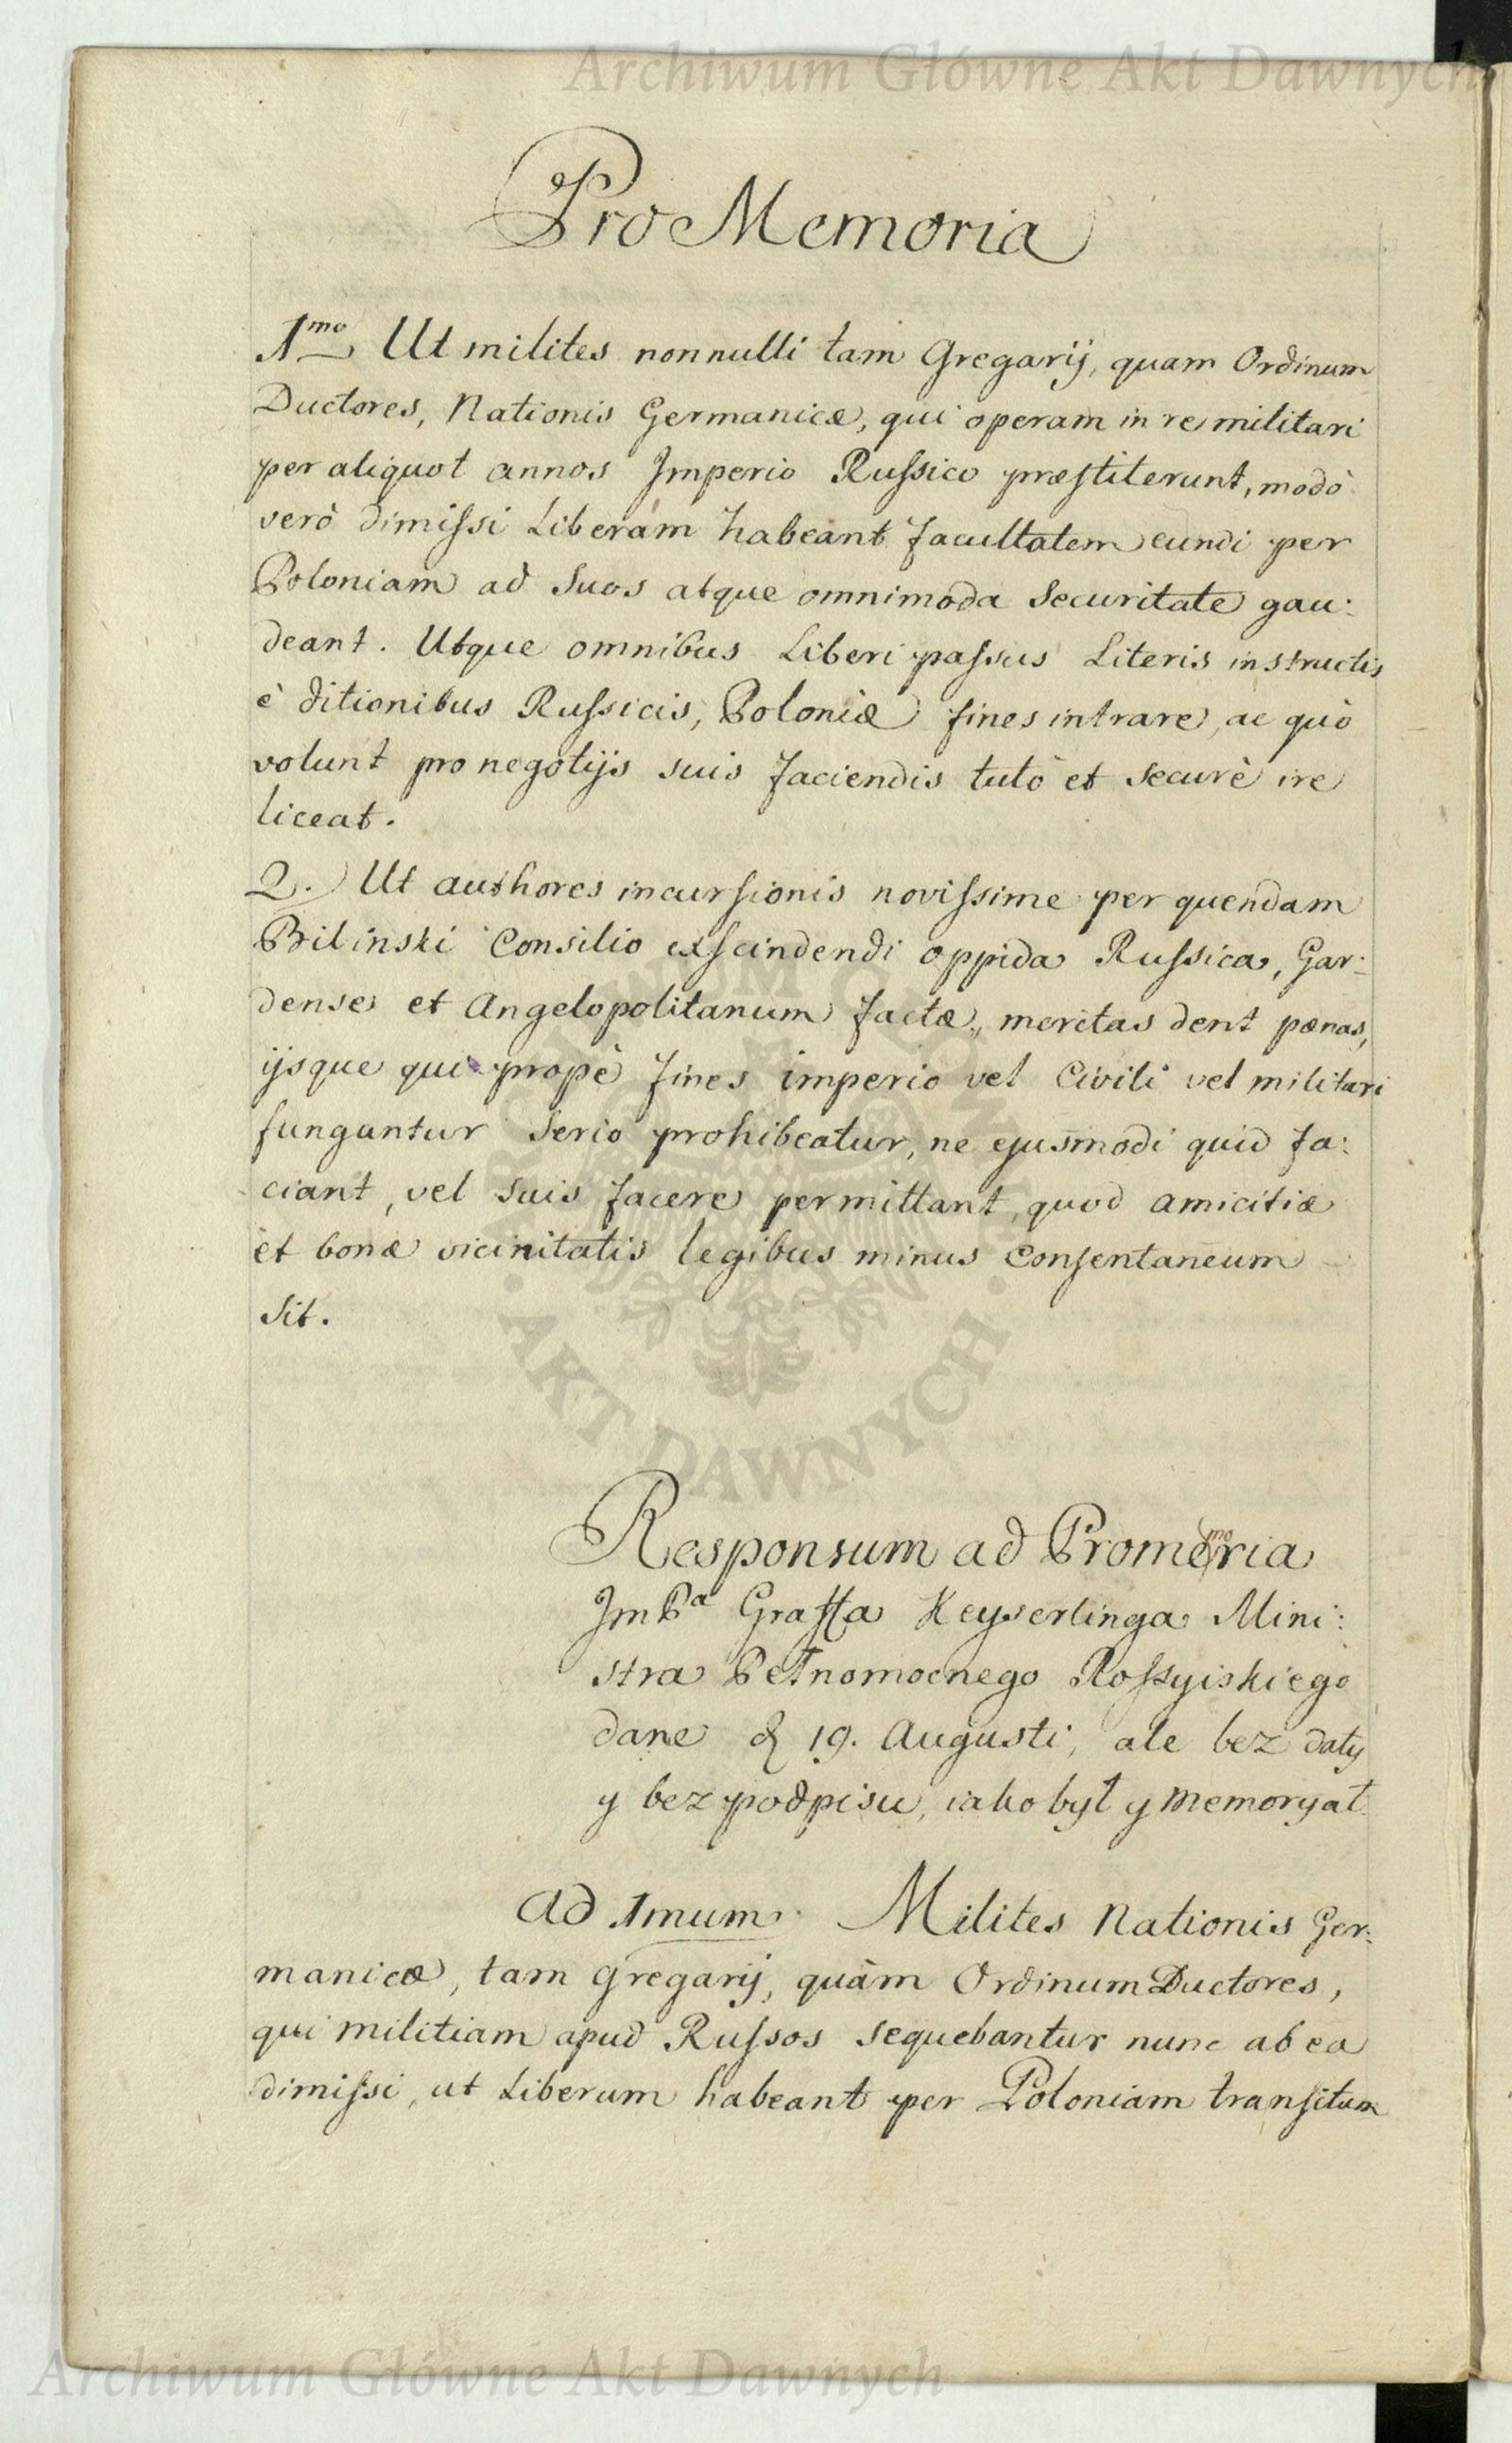 Archiwum Główne Akt Dawnych
Pro Memoria
1mo Ut milites nonnulli tam Gregarij, quam Ordinum
Ductores, Nationis Germanicæ, qui operam in re militari
per aliquot annos Jmperio Russico præstiterunt, modò
verò dimissi Liberam habeant facultatem eundi per
Poloniam ad Suos atque omnimoda Securitate gau:
deant. Utque omnibus Liberi passus Literis instructis
è ditionibus Russicis, Poloniæ fines intrare, ac quò
volunt pro negotijs suis faciendis tutò et securè ire
liceat.
2. Ut authores incursionis novissime per quendam
Bilinski Consilio exscindendi oppida Russica, Gar:
dense et Angelopolitanum factæ, meritas dent pœnas,
ijsque qui propè fines imperio vel Civili vel militari
funguntur Serio prohibeatur, ne ejusmodi quid fa:
ciant, vel suis facere permittant, quod amicitiæ
et bonæ vicinitatis legibus minus Consentaneum
sit.
AKT DAWNYCH
Responsum ad Promemoria
JmPa Graffa Keyserlinga Mini:
stra Pełnomocnego Rossyiskiego
dane d 19. Augusti, ale bez daty
y bez podpisu, iako był y memoryał.
Ad 1mum. Milites Nationis Ger:
manicæ, tam gregarij, quàm Ordinum Ductores,
qui militiam apud Russos sequebantur nunc ab ea
dimissi, ut Liberum habeant per Poloniam transitum
Archiwum Główne Akt Dawnych